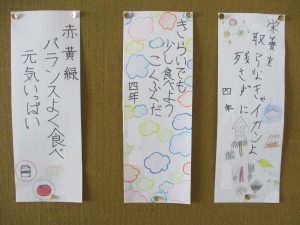 栄養を
取らなきゃイカンよ
残さずに
四年
きらいでも
少し食べよう
こくふくだ
四年
赤黄緑
バランスよく食べ
元気いっぱい